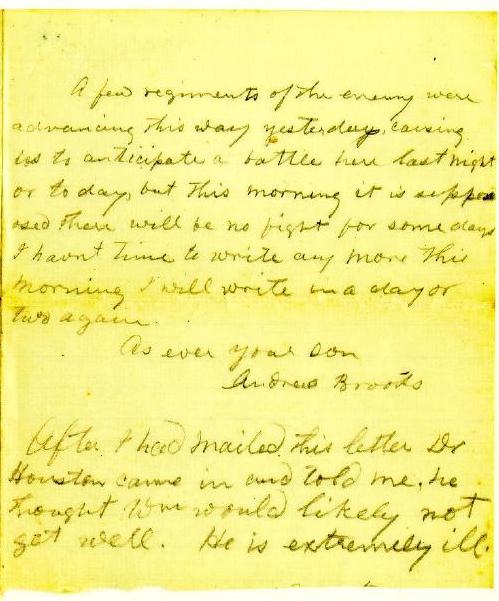 A few regiments of the enemy were
advancing this way yesterday, causing
us to anticipate a battle here last night
or to day, but this morning it is suppo
osed there will be no fight for some days
I havnt time to write any more this
morning I will write in a day or
two again.
As ever your son
Andrew Brooks
After I had mailed this letter Dr
Houston came in and told me, he
thought Wm would likely not
get well. He is extremely ill.